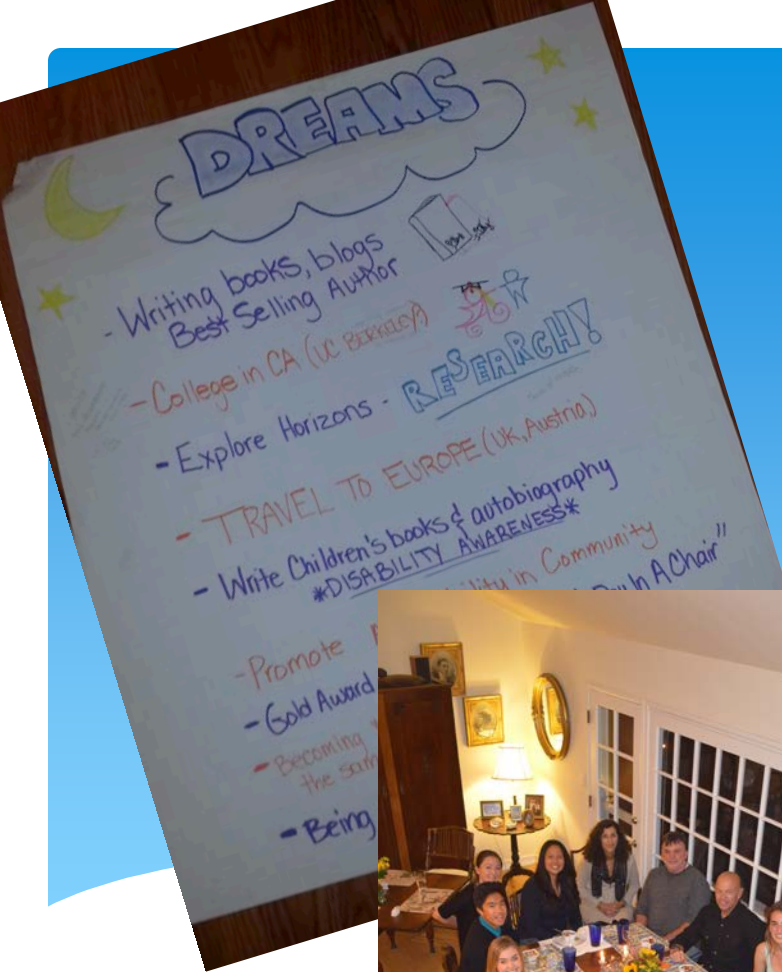 DREAMS
- Writing books, blogs
Best Selling Author
- College in CA (UC BERKELEY)
- Explore Horizons - RESEARCH!
- TRAVEL TO EUROPE (UK, Austria)
- Write Children's books & autobiography
*DISABILITY AWARENESS*
- Promote in Community
- Gold Award In A Chair"
- Becoming
the sam
- Being